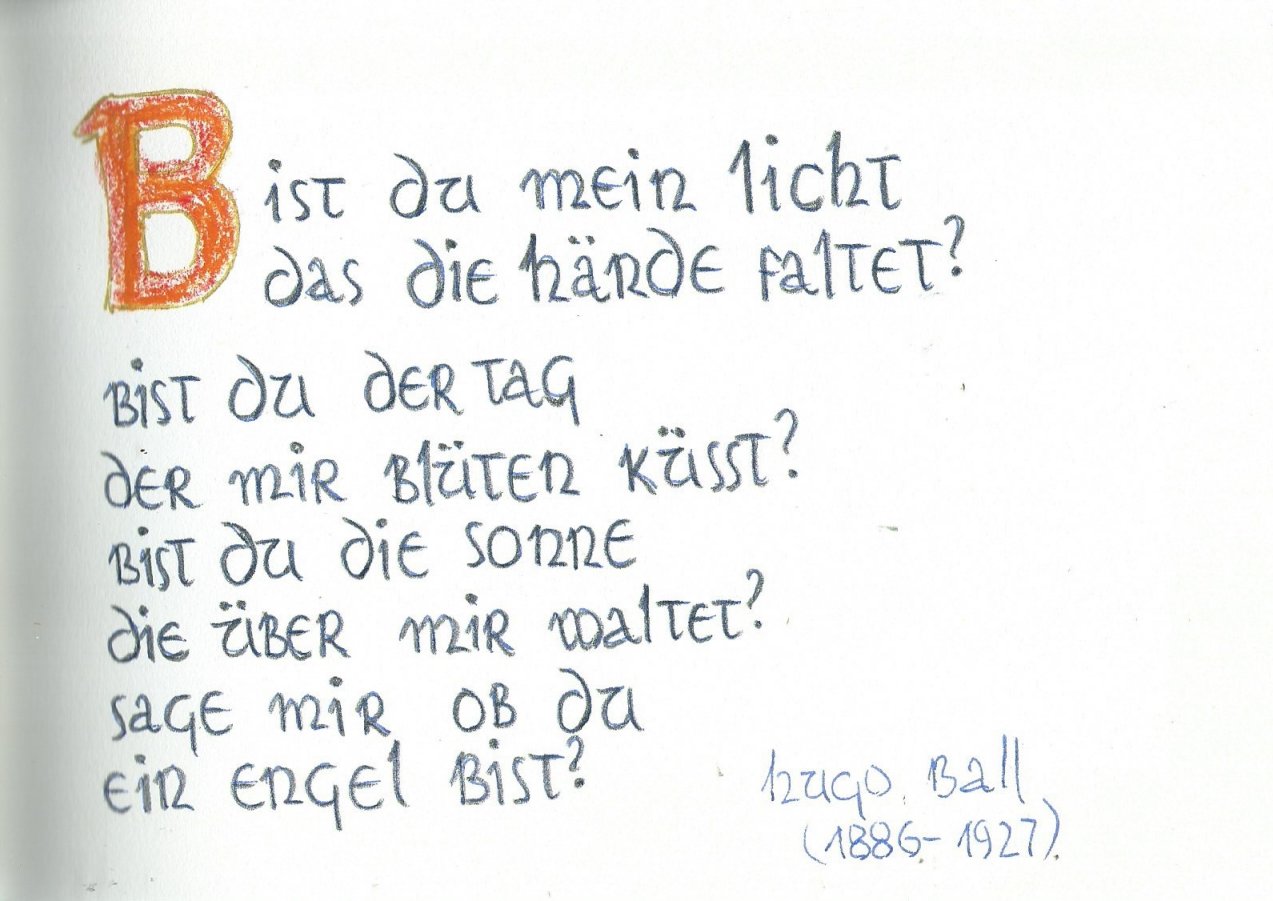 Bist du mein licht
das die hände faltet?
Bist du der tag
der mir Blüten küsst?
Bist du die sonne
die über mir waltet?
sage mir ob du
ein engel Bist?
hugo Ball
(1886-1927).